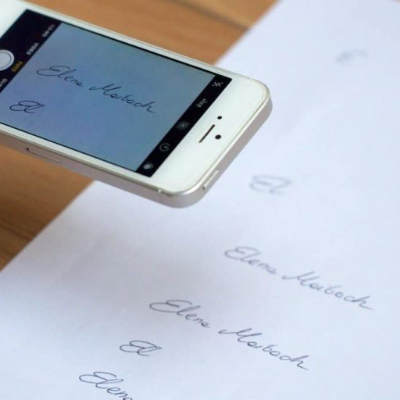 Elena Maibach
El
E
El
Elena Maibach
Elena Maibach
El
Elena